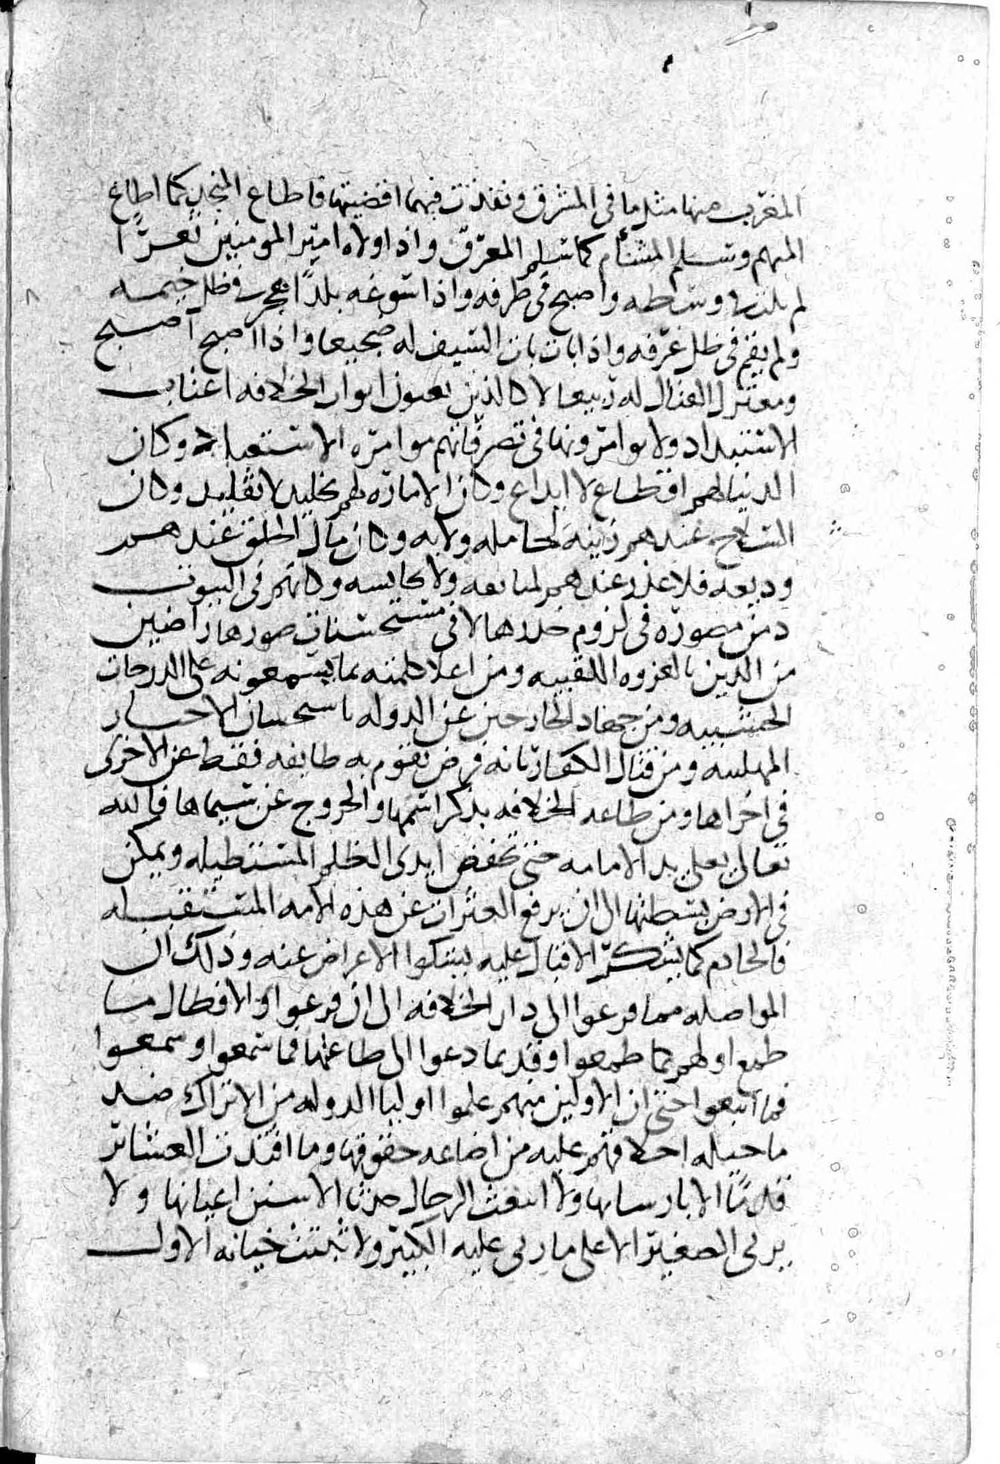 المغرب منها مثل ما فى المشرق ونفذت فيهما اقضيتها فاطاع المنجد كما اطاع
المتهم وتسلم المشئام كما تسلم المعرق واذا ولاه امير المومنين ثغرا
لم يلت وسطه واصبح فى طرفه واذا سوغه بلدا هجر فى ظل خيمه
ولم يقم فى ظل غرفه واذا بات بات السيف له ضجيعا واذا اصبح اصبح
ومعترك القتال له ربيعا لا كالذين يغبون ابواب الخلافه اغباب
الاستبداد ولا يوامرونها فى تصرفاتهم موامره الاستعباد وكان
الدنيا لهم اقطاع لا ايداع وكان الاماره لهم تخليد لا تقليد وكان
السلاح عندهم زينه لحامله ولابه وكان مال الخلق عندهم
وديعه فلا عذر عندهم لمانعه ولا حابسه وكانهم فى البيوت
دمى مصوره فى لزوم خدرها لا فى مستحسنات صورها راضين
من الدين بالعزوه اللقبيه ومن اعلا كلمته بما يسمعونه على الدرجات
الخشبيه ومن جهاد الخارجين عن الدوله باستحسان الاخبار
المهلبيه ومن قتال الكفار بانه فرض تقوم به طايفه فقط عن الاخرى
فى اخراها ومن طاعه الخلافه بذكر اسمها والخروج عن سيماها فالله
تعالى يعلى يد الامامه حتى تخفض ايدى الظلم المستطيله ويمكن
فى الارض بسطتها الى ان يرفع العثرات عن هذه الامه المستقيله
فالخادم كما يشكر الاقبال عليه يشكوا الاعراض عنه وذلك ان
المواصله مما فرعوا الى دار الخلافه الى ان فرعوا والافطال ما
طمعوا لهم كما طمعوا وقديما دعوا الى طاعتها فما سمعوا وسمعوا
فما اتبعوا حتى ان الاولين منهم علموا اوليا الدوله من الاتراك ضد
ما جبله اخلاقهم عليه من اضاعه حقوقها وما اقتدت العشاير
قدما الا باروسايها ولا اتبعت الرجال حدثا الاسنن اعيانها ولا
يربى الصغير الا على ما ربى عليه الكبير ولا ثبتت خيانه الاول